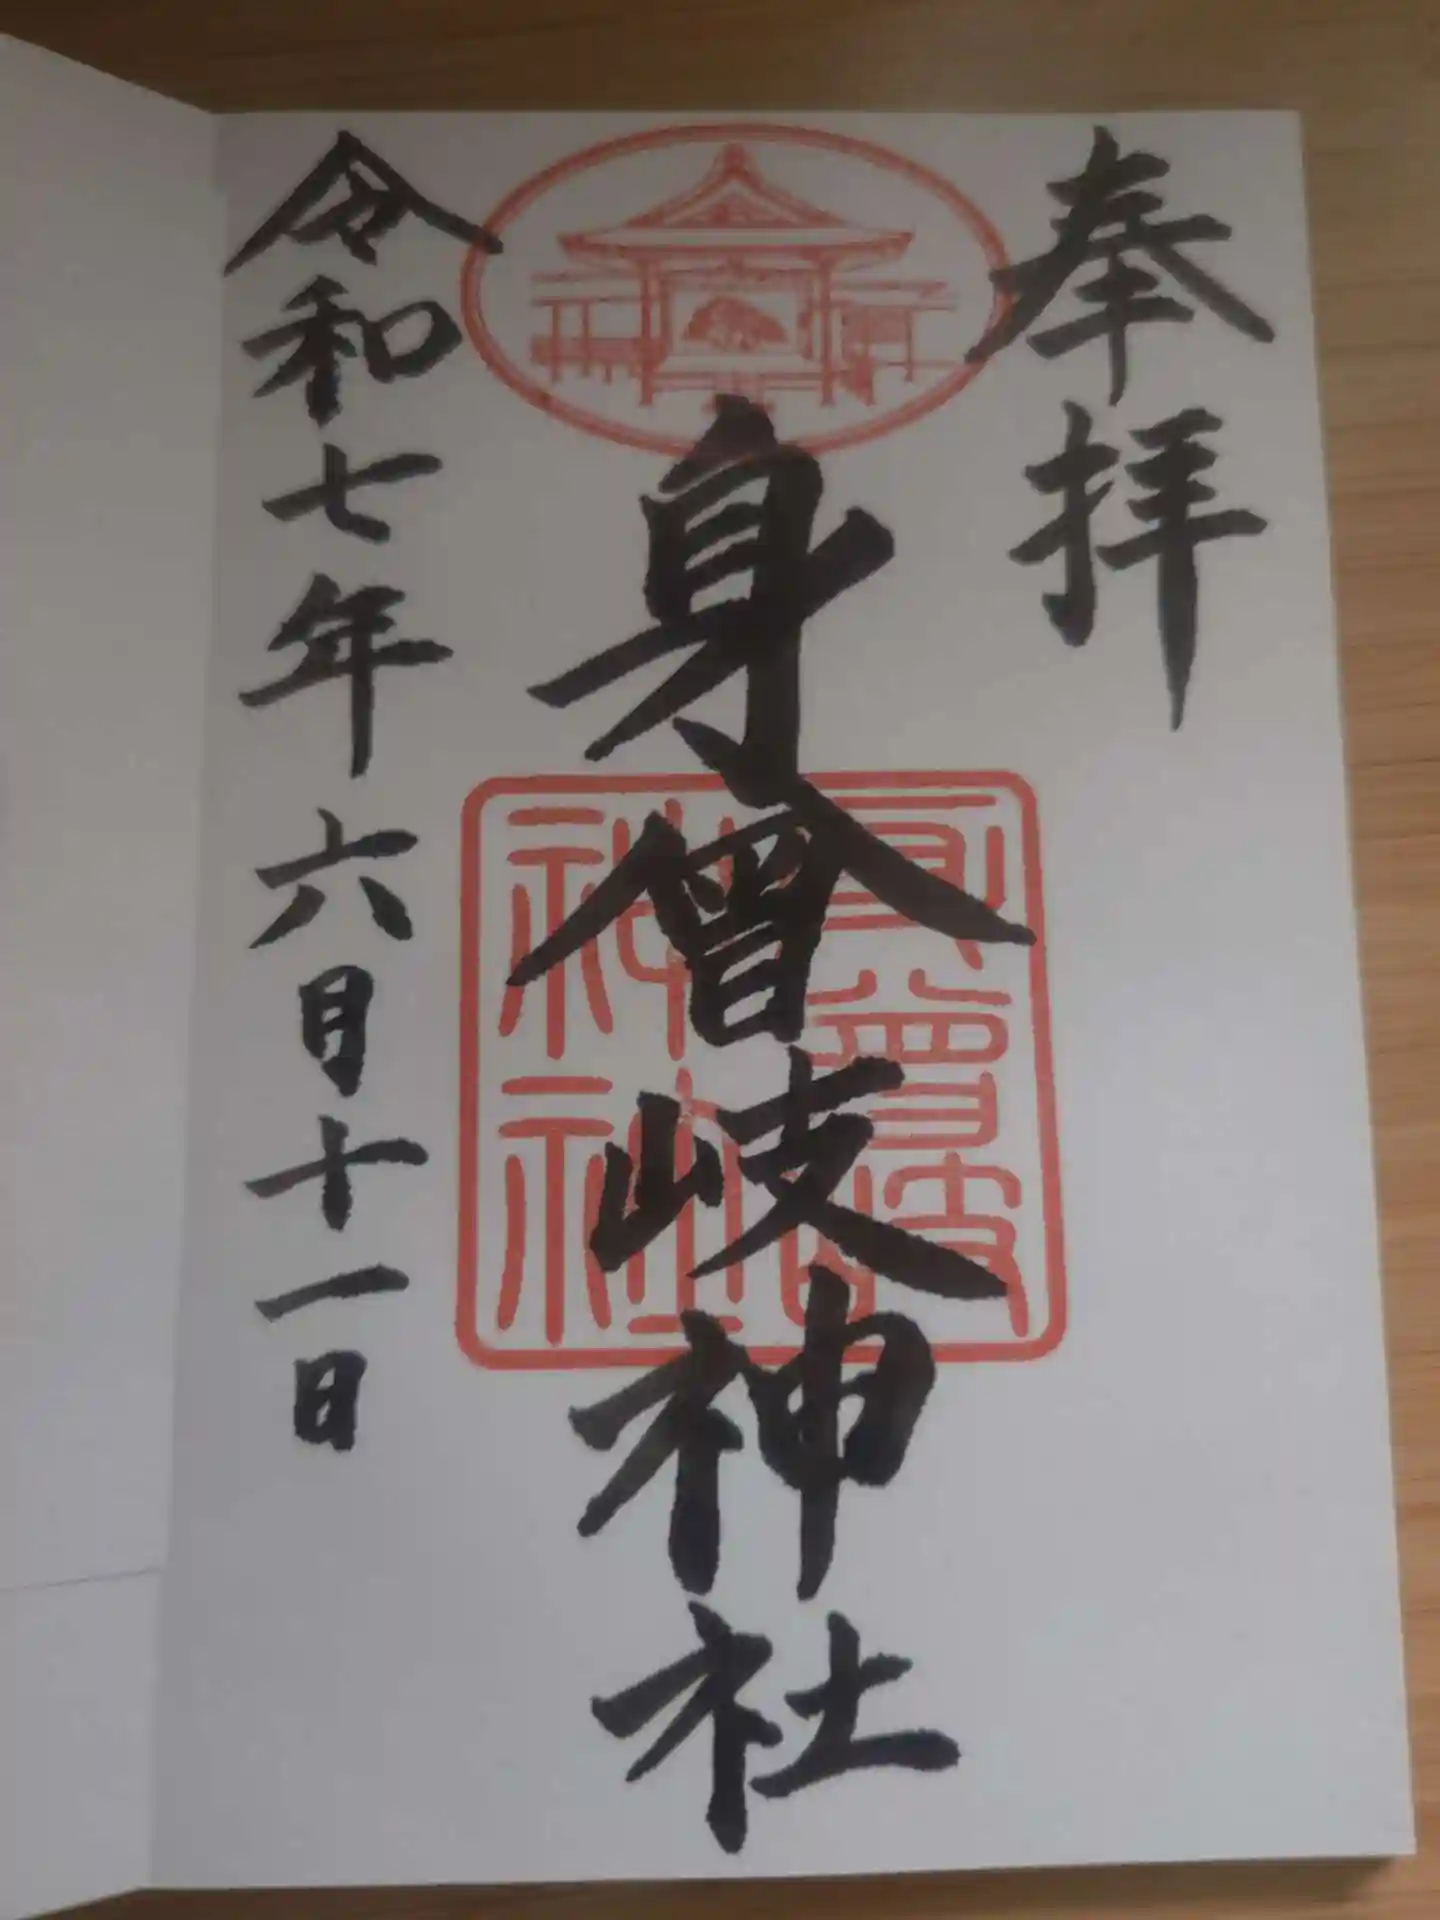 奉拝
身曾岐神社
身曾岐
神社
令和七年六月十一日